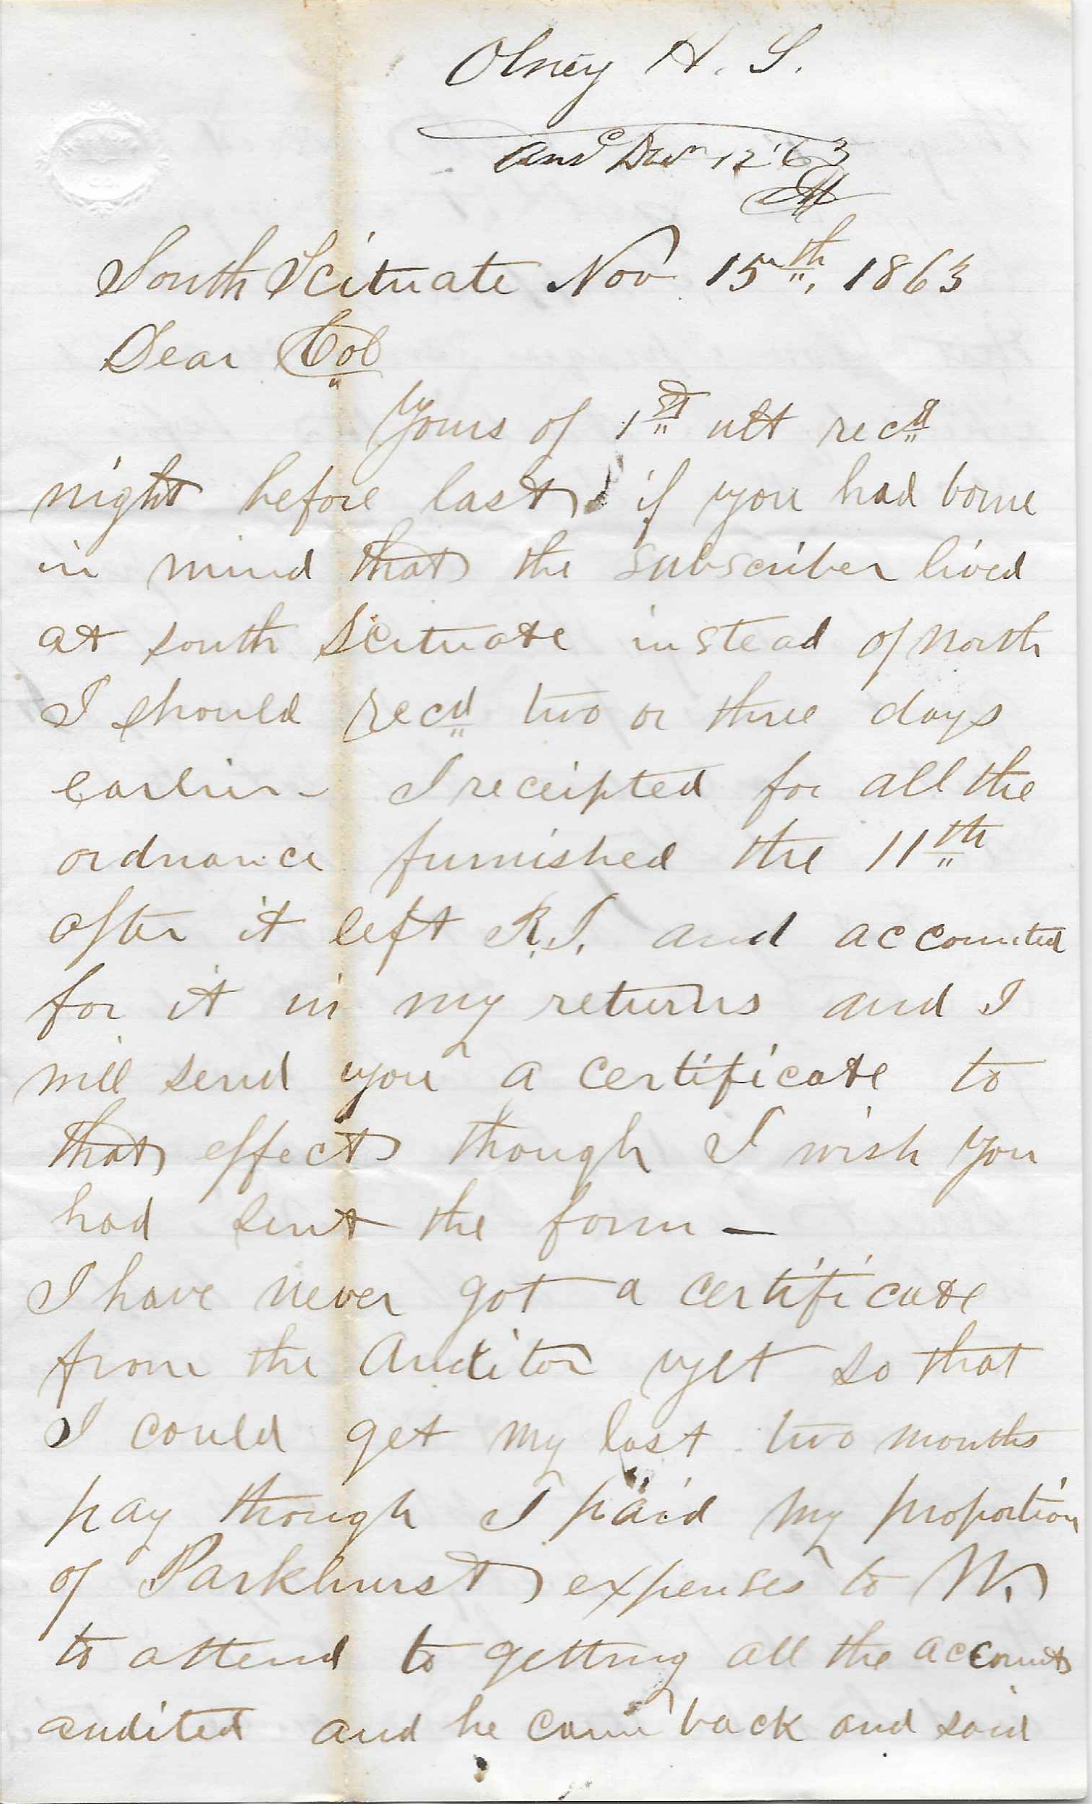 Olney H. S.
Ansd Decr 12 '63
South Scituate Nov 15th, 1863
Dear Col
Yours of 1st ult recd
night before last, if you had borne
in mind that the subscriber lived
at south Scituate instead of North
I should recd two or three days
earlier - I receipted for all the
ordnance furnished the 11th
after it left R.I. and accounted
for it in my returns and I
will send you a certificate to
that effect though I wish you
had sent the form —
I have never got a certificate
from the Auditor yet so that
I could get my last two months
pay though I paid my proportion
of Parkhurst expenses to W.
to attend to getting all the accounts
audited and he came back and said